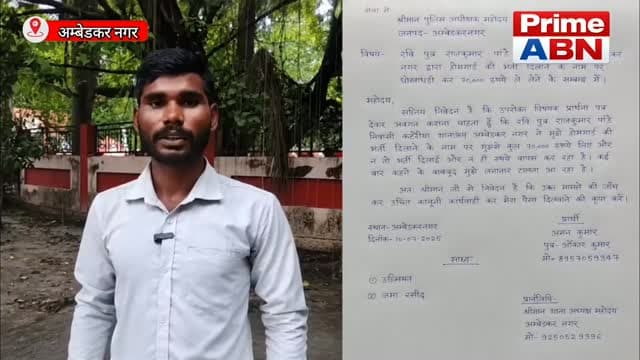 अम्बेडकर नगर
Prime
ABN
सेवा में
श्रीमान पुलिस अधीक्षक महोदय
जनपद- अम्बेडकरनगर
विषय- रवि पुत्र राजकुमार पांडे
नगर द्वारा होमगार्ड की भर्ती दिलाने के नाम पर
धोखाधड़ी कर 70,000 रुपये ले लेने के सम्बन्ध में।
महोदय,
सविनय निवेदन है कि उपरोक्त विषयक प्रार्थना पत्र
देकर अवगत कराना चाहता हूँ कि रवि पुत्र राजकुमार पांडे
निवासी अम्बेडकर नगर ने मुझे होमगार्ड की
भर्ती दिलाने के नाम पर मुझसे कुल 70,000 रुपये लिए और
न तो भर्ती दिलाई और न ही रुपये वापस कर रहा है। कई
बार कहने के बावजूद मुझे लगातार टालता आ रहा है।
अतः श्रीमान जी से निवेदन है कि उक्त मामले की जाँच
कर उचित कानूनी कार्यवाही कर मेरा पैसा दिलवाने की कृपा करें।
स्थान- अम्बेडकरनगर
दिनांक- 10-07-2025
प्रार्थी
अमन कुमार
पुत्र- ओंकार कुमार
मो- 8957059347
साक्ष्य
(2) जमा रसीद
श्रीमान थाना अध्यक्ष महोदय
अम्बेडकर नगर
मो- 9250529396